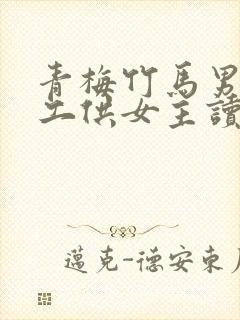 青梅竹馬男
工供女主讀
邁克-德安東